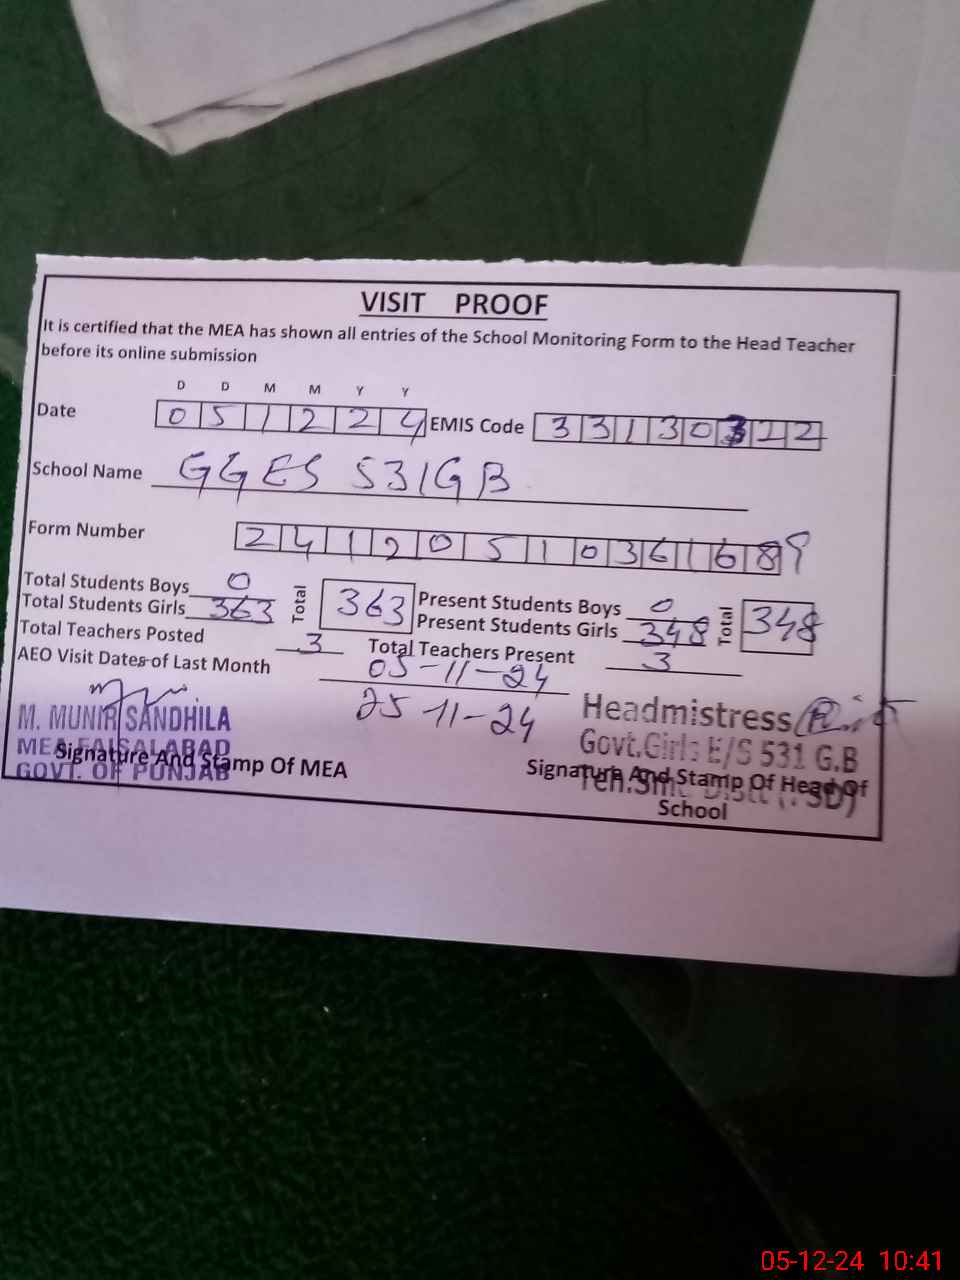 VISIT PROOF
It is certified that the MEA has shown all entries of the School Monitoring Form to the Head Teacher
before its online submission
D D M M Y Y
Date 051224 EMIS Code 33130322
School Name GGES 531GB
Form Number 24120510361689
Total Students Boys 0
Total Students Girls 363
Total 363
Present Students Boys 0
Present Students Girls 348
Total 348
Total Teachers Posted 3 Total Teachers Present 3
AEO Visit Dates of Last Month 05-11-24
25-11-24
M. MUNIR SANDHILA
MEA FAISALABAD
GOVT. OF PUNJAB
Signature And Stamp Of MEA
Headmistress
Govt.Girls E/S 531 G.B
Signature And Stamp Of Head Of
School
05-12-24 10:41